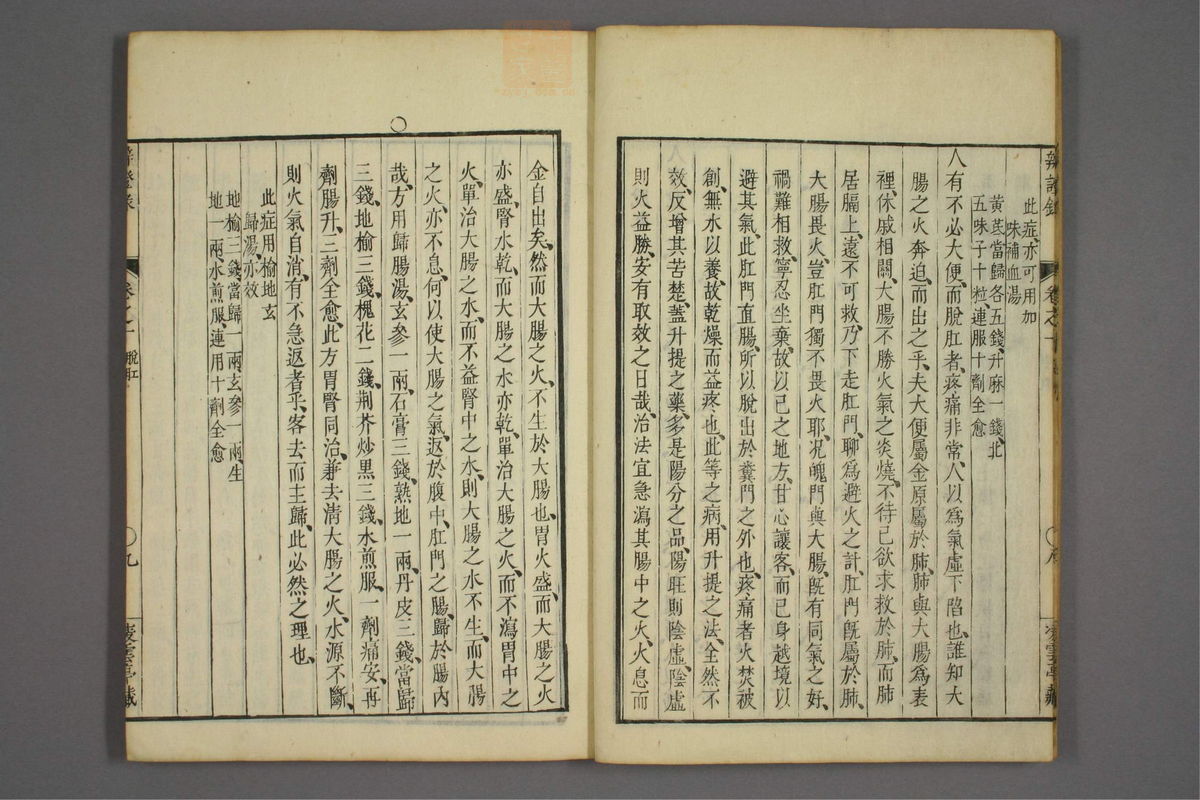 此症亦可用加
味補血湯
黃芪當歸各五錢升麻一錢北
五味子十粒連服十劑全愈
人有不必大便而脫肛者疼痛非常人以爲氣虛下陷也誰知大
腸之火奔迫而出之乎夫大便屬金原屬於肺肺與大腸爲表
裡休戚相關大腸不勝火氣之炎燒不待已欲求救於肺而肺
居膈上遠不可救乃下走肛門聊爲避火之計肛門旣屬於肺
大腸畏火豈肛門獨不畏火耶况魄門與大腸旣有同氣之好
禍難相救寧忍坐棄故以己之地方甘心讓客而己身越境以
避其氣此肛門直腸所以脫出於糞門之外也疼痛者火焚被
創無水以養故乾燥而益疼也此等之病用升提之法全然不
效反增其苦楚蓋升提之藥多是陽分之品陽旺則陰虛陰虛
則火益勝安有取效之日哉治法宜急瀉其腸中之火火息而
辨證錄
卷之十
凌雲亭藏
金自出矣然而大腸之火不生於大腸也胃火盛而大腸之火
亦盛腎水乾而大腸之水亦乾單治大腸之火而不瀉胃中之
火單治大腸之水而不益腎中之水則大腸之水不生而大腸
之火亦不息何以使大腸之氣返於腹中肛門之腸歸於腸內
哉方用歸腸湯玄參一兩石膏三錢熟地一兩丹皮三錢當歸
三錢地榆三錢槐花二錢荆芥炒黑三錢水煎服一劑痛安再
劑腸升三劑全愈此方胃腎同治兼去淸大腸之火水源不斷
則火氣自消有不急返者乎客去而主歸此必然之理也
此症用榆地玄
歸湯亦效
地榆三錢當歸一兩玄參一兩生
地一兩水煎服連用十劑全愈
脫肛
九
凌雲亭藏